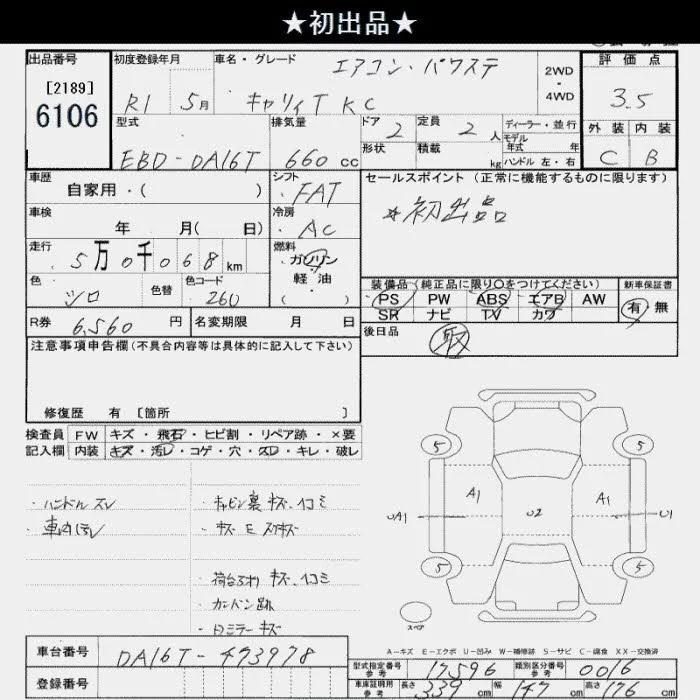 ★初出品★
出品番号 初度登録年月 車名・グレード エアコン・パワステ 2WD・4WD 評価点
[2189]
6106
R1 5月 キャリィT KC 3.5
型式 排気量 ドア 2 定員 2人 ディーラー・並行 外装 内装
モデル年式 年
EBD-DA16T 660cc 形状 積載 kg ハンドル 左・右 C B
車歴 シフト セールスポイント(正常に機能するものに限ります)
自家用・( ) FAT ★初出品
車検 冷房
年 月( 日) AC
走行 燃料
5万0千068km ガソリン
軽油
( )
色 色替 色コード 装備品(純正品に限り○をつけてください) 新車保証書
シロ 26U PS PW ABS エアB AW 有 無
SR ナビ TV カワ
R券 6,560円 名変期限 月 日 後日品 取
注意事項申告欄(不具合内容等は具体的に記入して下さい)
修復歴 有 [箇所 ]
検査員 FW キズ・飛石・ヒビ割・リペア跡・×要
記入欄 内装 キズ・汚レ・コゲ・穴・スレ・キレ・破レ
・ハンドルスレ ・キャビン裏 キズ、凹ミ
・車内汚レ ・キズ E スリキズ
・荷台まわり キズ、凹ミ
・カンバン跡
・Dミラーキズ
5 5
A1 A1
UA1 U2 U1
5 5
スペア
A-キズ E-エクボ U-凹み W-補修跡 S-サビ C-腐食 XX-交換済
車台番号 DA16T-473978 型式指定番号 参考 17596 類別区分番号 参考 0016
登録番号 車庫証明用 参考 長さ 339cm 幅 147cm 高さ 176cm